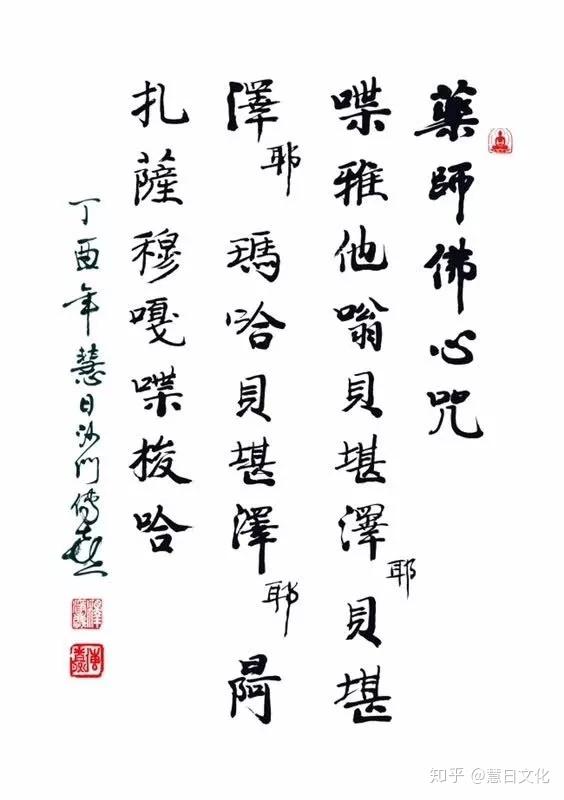 藥師佛心咒
喋雅他嗡貝堪澤耶貝堪
澤耶 瑪哈貝堪澤耶
扎薩穆嘎喋梭哈
丁酉年慧日沙門傳喜
知乎 @慧日文化